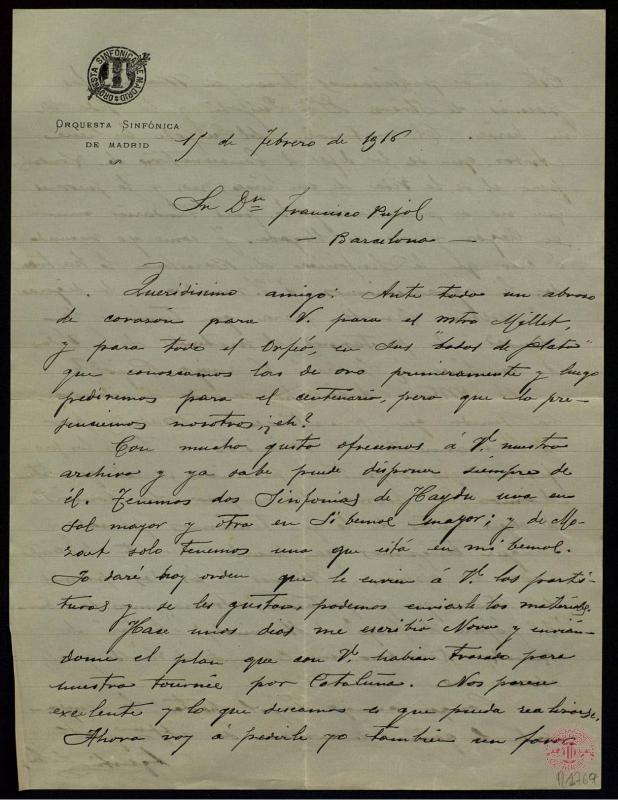 ORQUESTA SINFÓNICA DE MADRID
ORQUESTA SINFÓNICA
DE MADRID
15 de Febrero de 1916
Sr Dn Francisco Pujol
— Barcelona —
Queridisimo amigo: Ante todo un abrazo
de corazón para V. para el mtro Millet,
y para todo el Orfeó, en sus "bodas de plata"
que conozcamos las de oro primeramente y luego
pediremos para el centenario, pero que lo pre-
senciemos nosotros, ¡eh?
Con mucho gusto ofrecemos á Vd. nuestro
archivo y ya sabe puede disponer siempre de
él. Tenemos dos Sinfonias de Haydn una en
Sol mayor y otra en Si bemol mayor; y de Mo-
zart solo tenemos una que está en mi bemol.
Yo daré hoy orden que le envien á Vd. las parti-
turas y si les gustan, podemos enviarle los materiales.
Hace unos dias me escribió Nova y envián-
dome el plan que con Vd. habian trazado para
nuestra tournée por Cataluña. Nos parece
excelente y lo que deseamos es que pueda realizarse.
Ahora voy á pedirle yo tambien un favor
M 1769